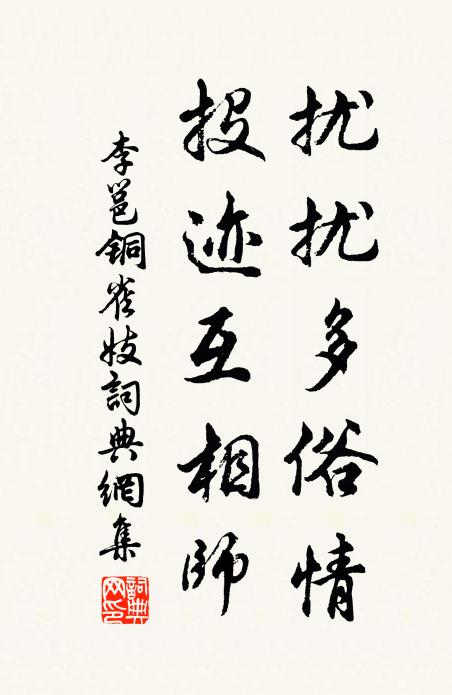 扰扰多俗情
投迹互相师
李邕铜雀妓詞典網集
詞典网印